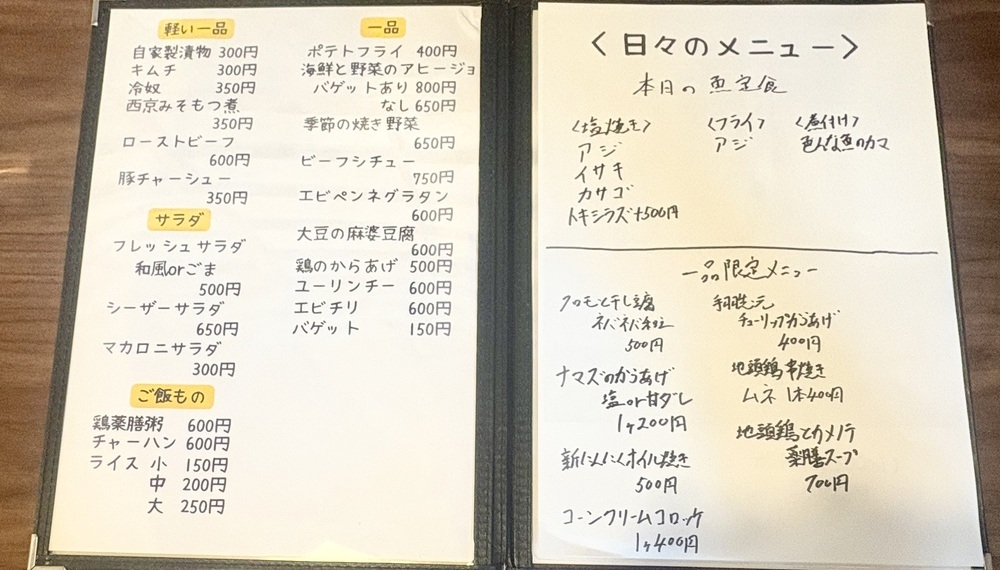 軽い一品
自家製漬物 300円
キムチ 300円
冷奴 350円
西京みそもつ煮
350円
ローストビーフ
600円
豚チャーシュー
350円
サラダ
フレッシュサラダ
和風orごま
500円
シーザーサラダ
650円
マカロニサラダ
300円
ご飯もの
鶏薬膳粥 600円
チャーハン 600円
ライス 小 150円
中 200円
大 250円
一品
ポテトフライ 400円
海鮮と野菜のアヒージョ
バゲットあり 800円
なし 650円
季節の焼き野菜
650円
ビーフシチュー
750円
エビペンネグラタン
600円
大豆の麻婆豆腐
600円
鶏のからあげ 500円
ユーリンチー 600円
エビチリ 600円
バゲット 150円
<日々のメニュー>
本日の魚定食
<塩焼き>
アジ
イサキ
カサゴ
トキシラズ+500円
<フライ>
アジ
<煮付け>
色んな魚のカマ
一品限定メニュー
500円
ナマズのからあげ
塩or甘ダレ
1ヶ200円
新にんにくオイル焼き
500円
コーンクリームコロッケ
1ヶ400円
手羽元
チューリップからあげ
400円
地頭鶏串焼き
ムネ 1本400円
地頭鶏とカメノテ
薬膳スープ
700円